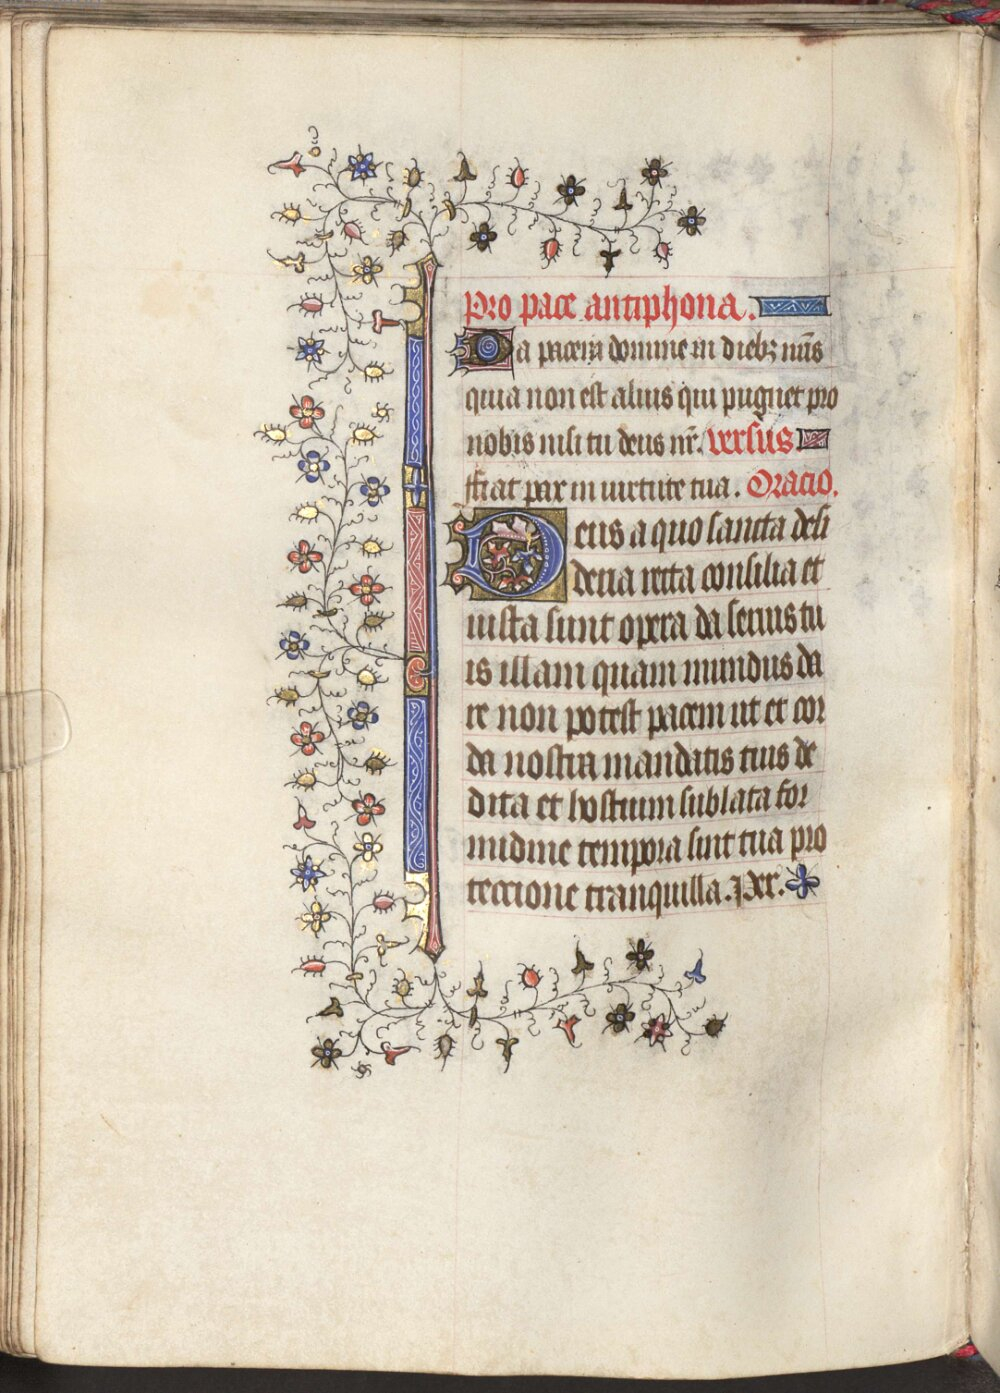 Pro pace antiphona.
Da pacem domine in diebꝫ nr̄is
quia non est alius qui pugnet pro
nobis nisi tu deus nr̄. versus
ffiat pax in uirtute tua. Oracio.
Deus a quo sancta desi
deria recta consilia et
iusta sunt opera da seruis tu
is illam quam mundus da
re non potest pacem ut et cor
da nostra mandatis tuis de
dita et hostium sublata for
midine tempora sint tua pro
teccione tranquilla. Per.